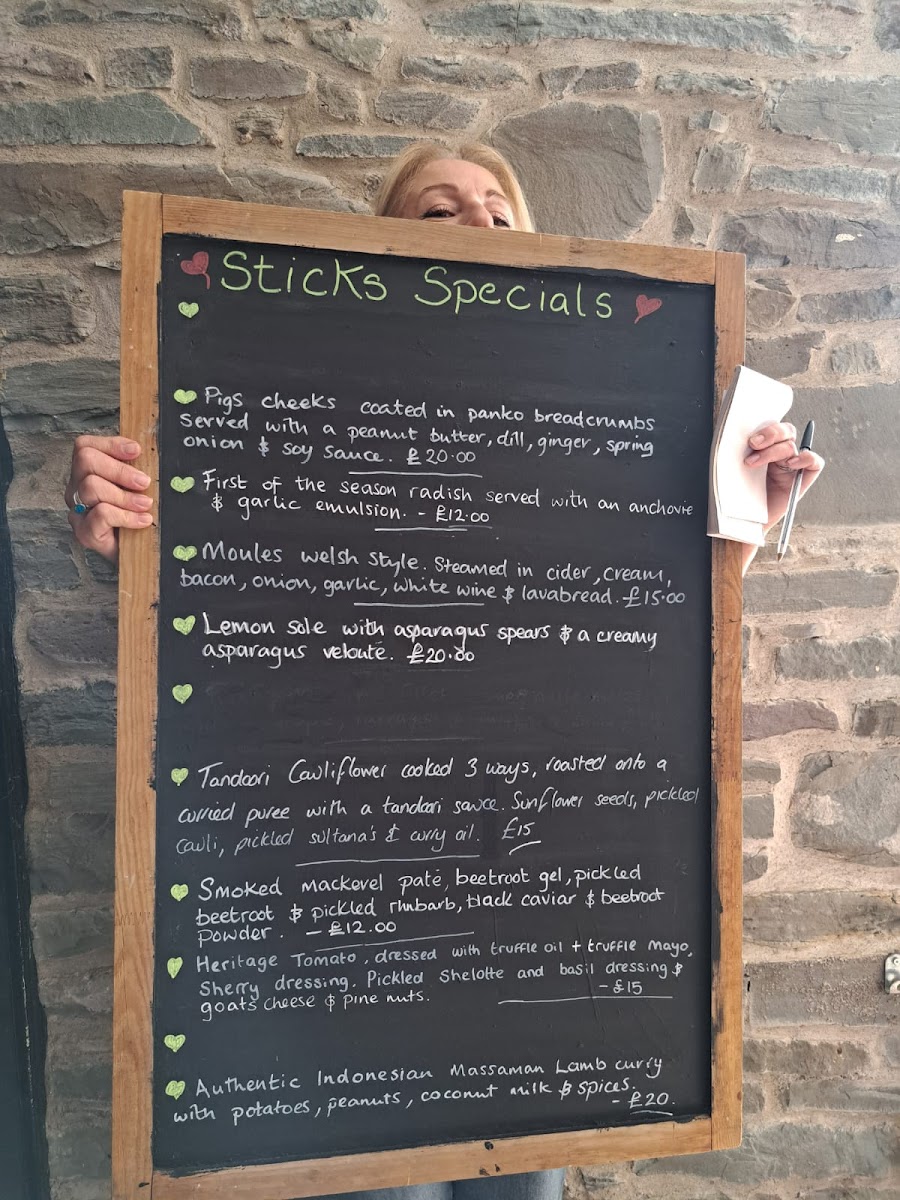 Sticks Specials
Pigs cheeks coated in panko breadcrumbs
served with a peanut butter, dill, ginger, spring
onion & soy sauce. £20.00
First of the season radish served with an anchovie
& garlic emulsion. - £12.00
Moules welsh style. Steamed in cider, cream,
bacon, onion, garlic, white wine & lavabread. - £15.00
Lemon sole with asparagus spears & a creamy
asparagus veloute. £20.00
Tandoori Cauliflower cooked 3 ways, roasted onto a
curried puree with a tandoori sauce. Sunflower seeds, pickled
cauli, pickled sultana's & curry oil. £15
Smoked mackerel paté, beetroot gel, pickled
beetroot & pickled rhubarb, black caviar & beetroot
powder. - £12.00
Heritage Tomato, dressed with truffle oil + truffle mayo,
Sherry dressing. Pickled Shelotte and basil dressing &
goats cheese & pine nuts. - £15
Authentic Indonesian Massaman Lamb curry
with potatoes, peanuts, coconut milk & spices.
- £20.